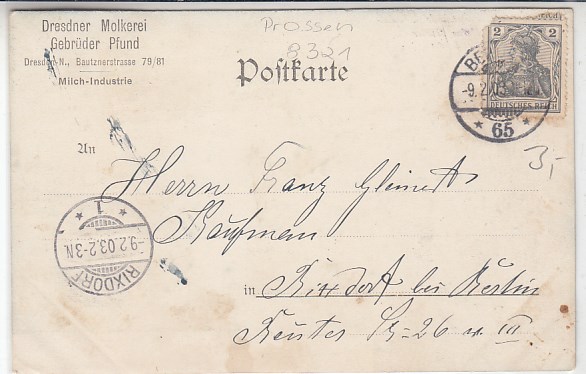 Dresdner Molkerei
Gebrüder Pfund
Dresden-N., Bautznerstrasse 79/81
Milch-Industrie
Prossen
8321
Postkarte
2
DEUTSCHES REICH
-9.2.03
* 65 *
3,-
An
Herrn Franz Gleinert
Kaufmann
in Rixdorf bei Berlin
Reuter Str 26 III
* 1 *
-9.2.03.2-3N.
RIXDORF